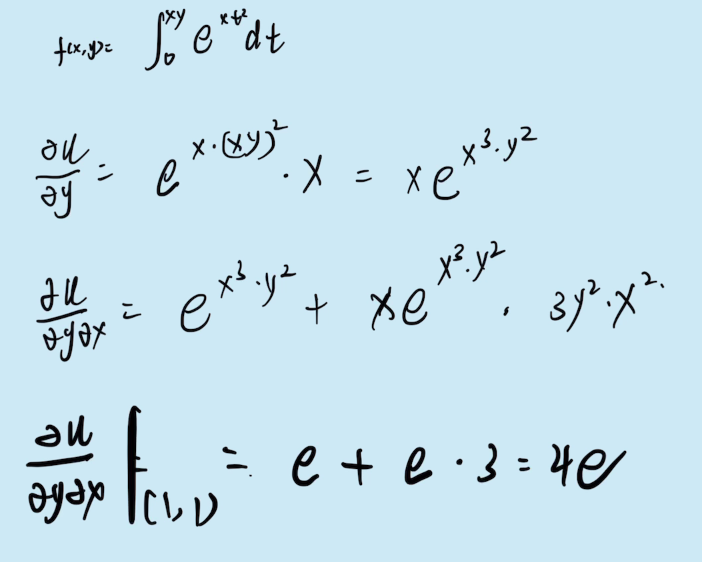 f(x,y)= ∫₀^{xy} e^{xt²} dt
∂u/∂y = e^{x·(xy)²} · x = xe^{x³·y²}
∂u/∂y∂x = e^{x³·y²} + xe^{x³·y²} · 3y²·x².
∂u/∂y∂x |_{(1,1)} = e + e · 3 = 4e